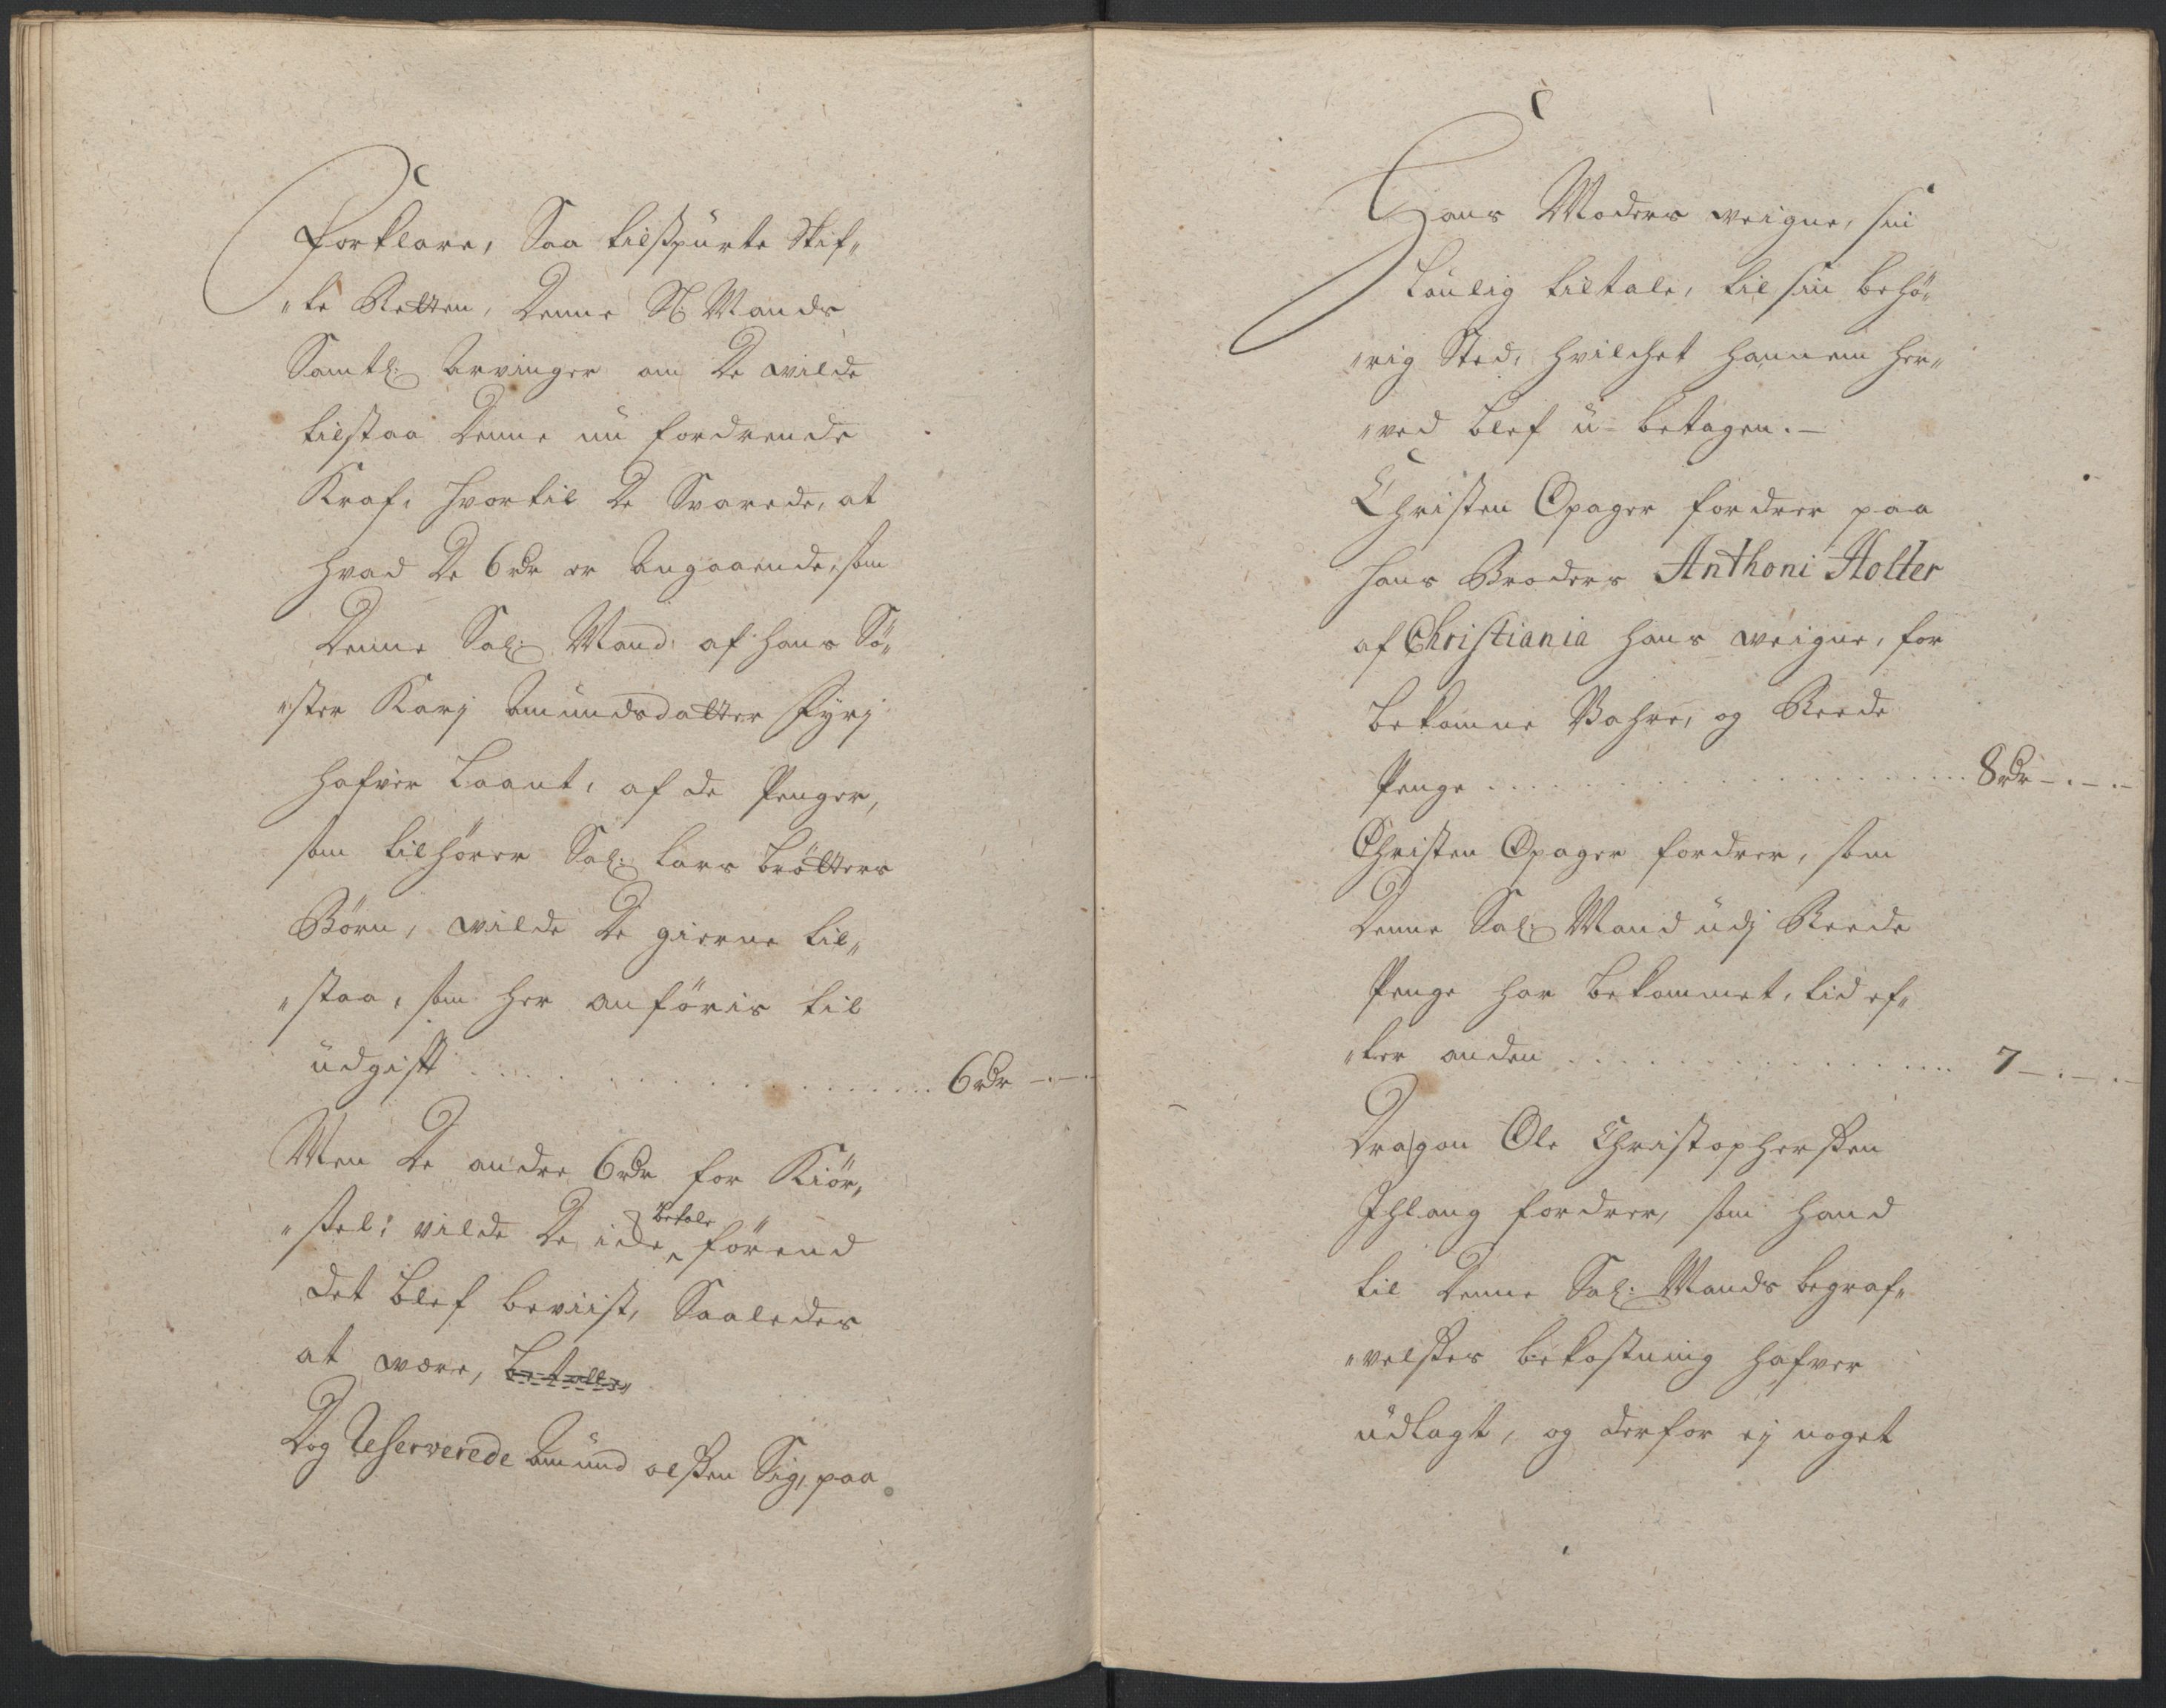 Forklare, Saa tilsspurte Skif„
„te Retten, Denne Sl: Mands
Samtl: Arvinger om De wilde
tilstaa Denne nu fordrende
Kraf, hvortil De Svarede, at
hvad De 6 rdr er Angaaende, som
Denne Sal: Mand af hans Sö„
„ster Karj Amundsdatter
hafver Laant, af de Penger,
som tilhörer Sal: Lars Brötters
Börn, wilde De gierne til„
„staa, som her anföris til
udgift . . . . . . 6 rdr -.-.-
Men De andre 6 rdr for Kiör„
„sel: vilde De icke betale förend
det blef beviist, Saaledes
at være, betalle,
Dog Reserverede Amund olssen Sig, paa
Hans Moders weigne, sin
Laulig tiltale, til sin behö„
„rig Sted, hvilchet hannem her„
„ved blef u-betagen.-
Christen Opager fordrer paa
hans Broders Anthoni Holter
af Christiania hans weigne, for
bekomne Vahre, og Reede
Penge . . . . . . 8 rdr -.-.-
Christen Opager fordrer, som
Denne Sal: Mand udj Reede
Penge har bekommet, tid ef„
„ter anden . . . . . . 7 -.-.-
Dragon Ole Christopherssen
Ihlang fordrer, som hand
til Denne Sal: Mands begraf„
„velsses bekostning hafver
udlagt, og derfor ej noget